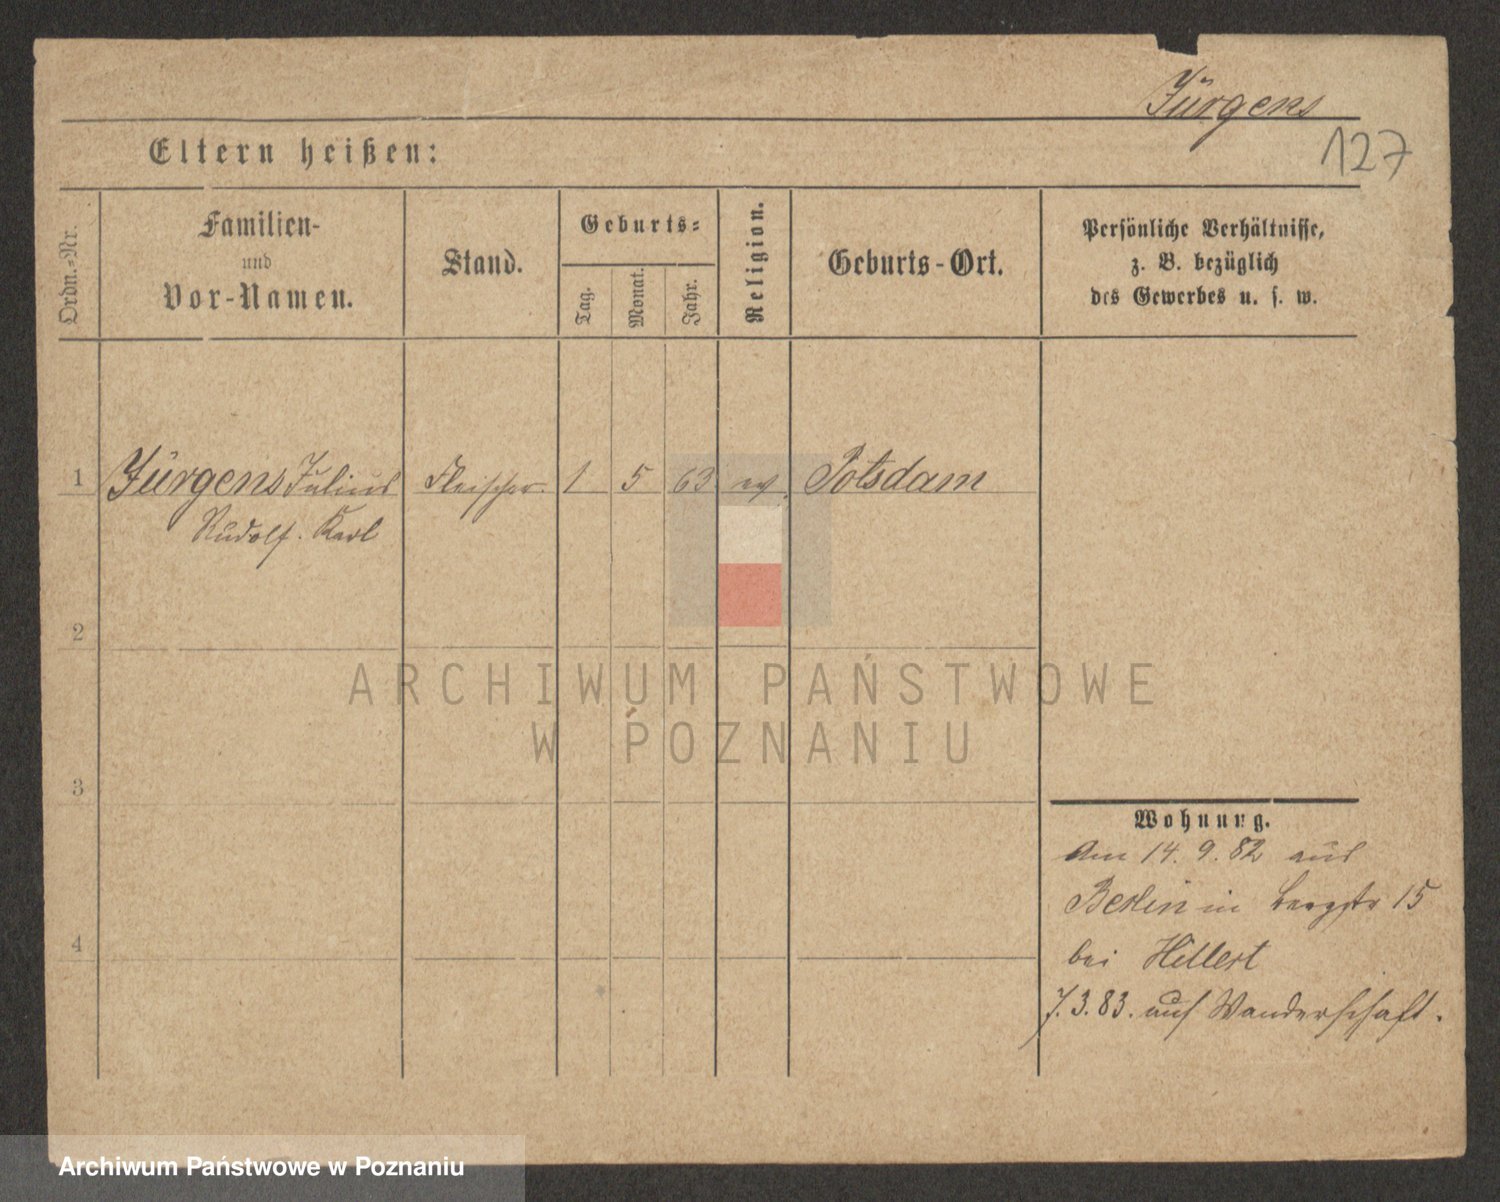 Jürgens
127
Eltern heißen:
Ordn.=Nr.
Familien-
und
Vor-Namen.
Stand.
Geburts=
Tag.
Monat.
Jahr.
Religion.
Geburts-Ort.
Persönliche Verhältnisse,
z. B. bezüglich
des Gewerbes u. s. w.
1 Jürgens Julius Fleischer. 1 5 63 ev. Potsdam
Rudolf. Karl
2
ARCHIWUM PAŃSTWOWE
W POZNANIU
3
Wohnung.
Am 14. 9. 82 aus
Berlin in Bergstr 15
4
bei Hillert
7. 3. 83. auf Wanderschaft.
Archiwum Państwowe w Poznaniu